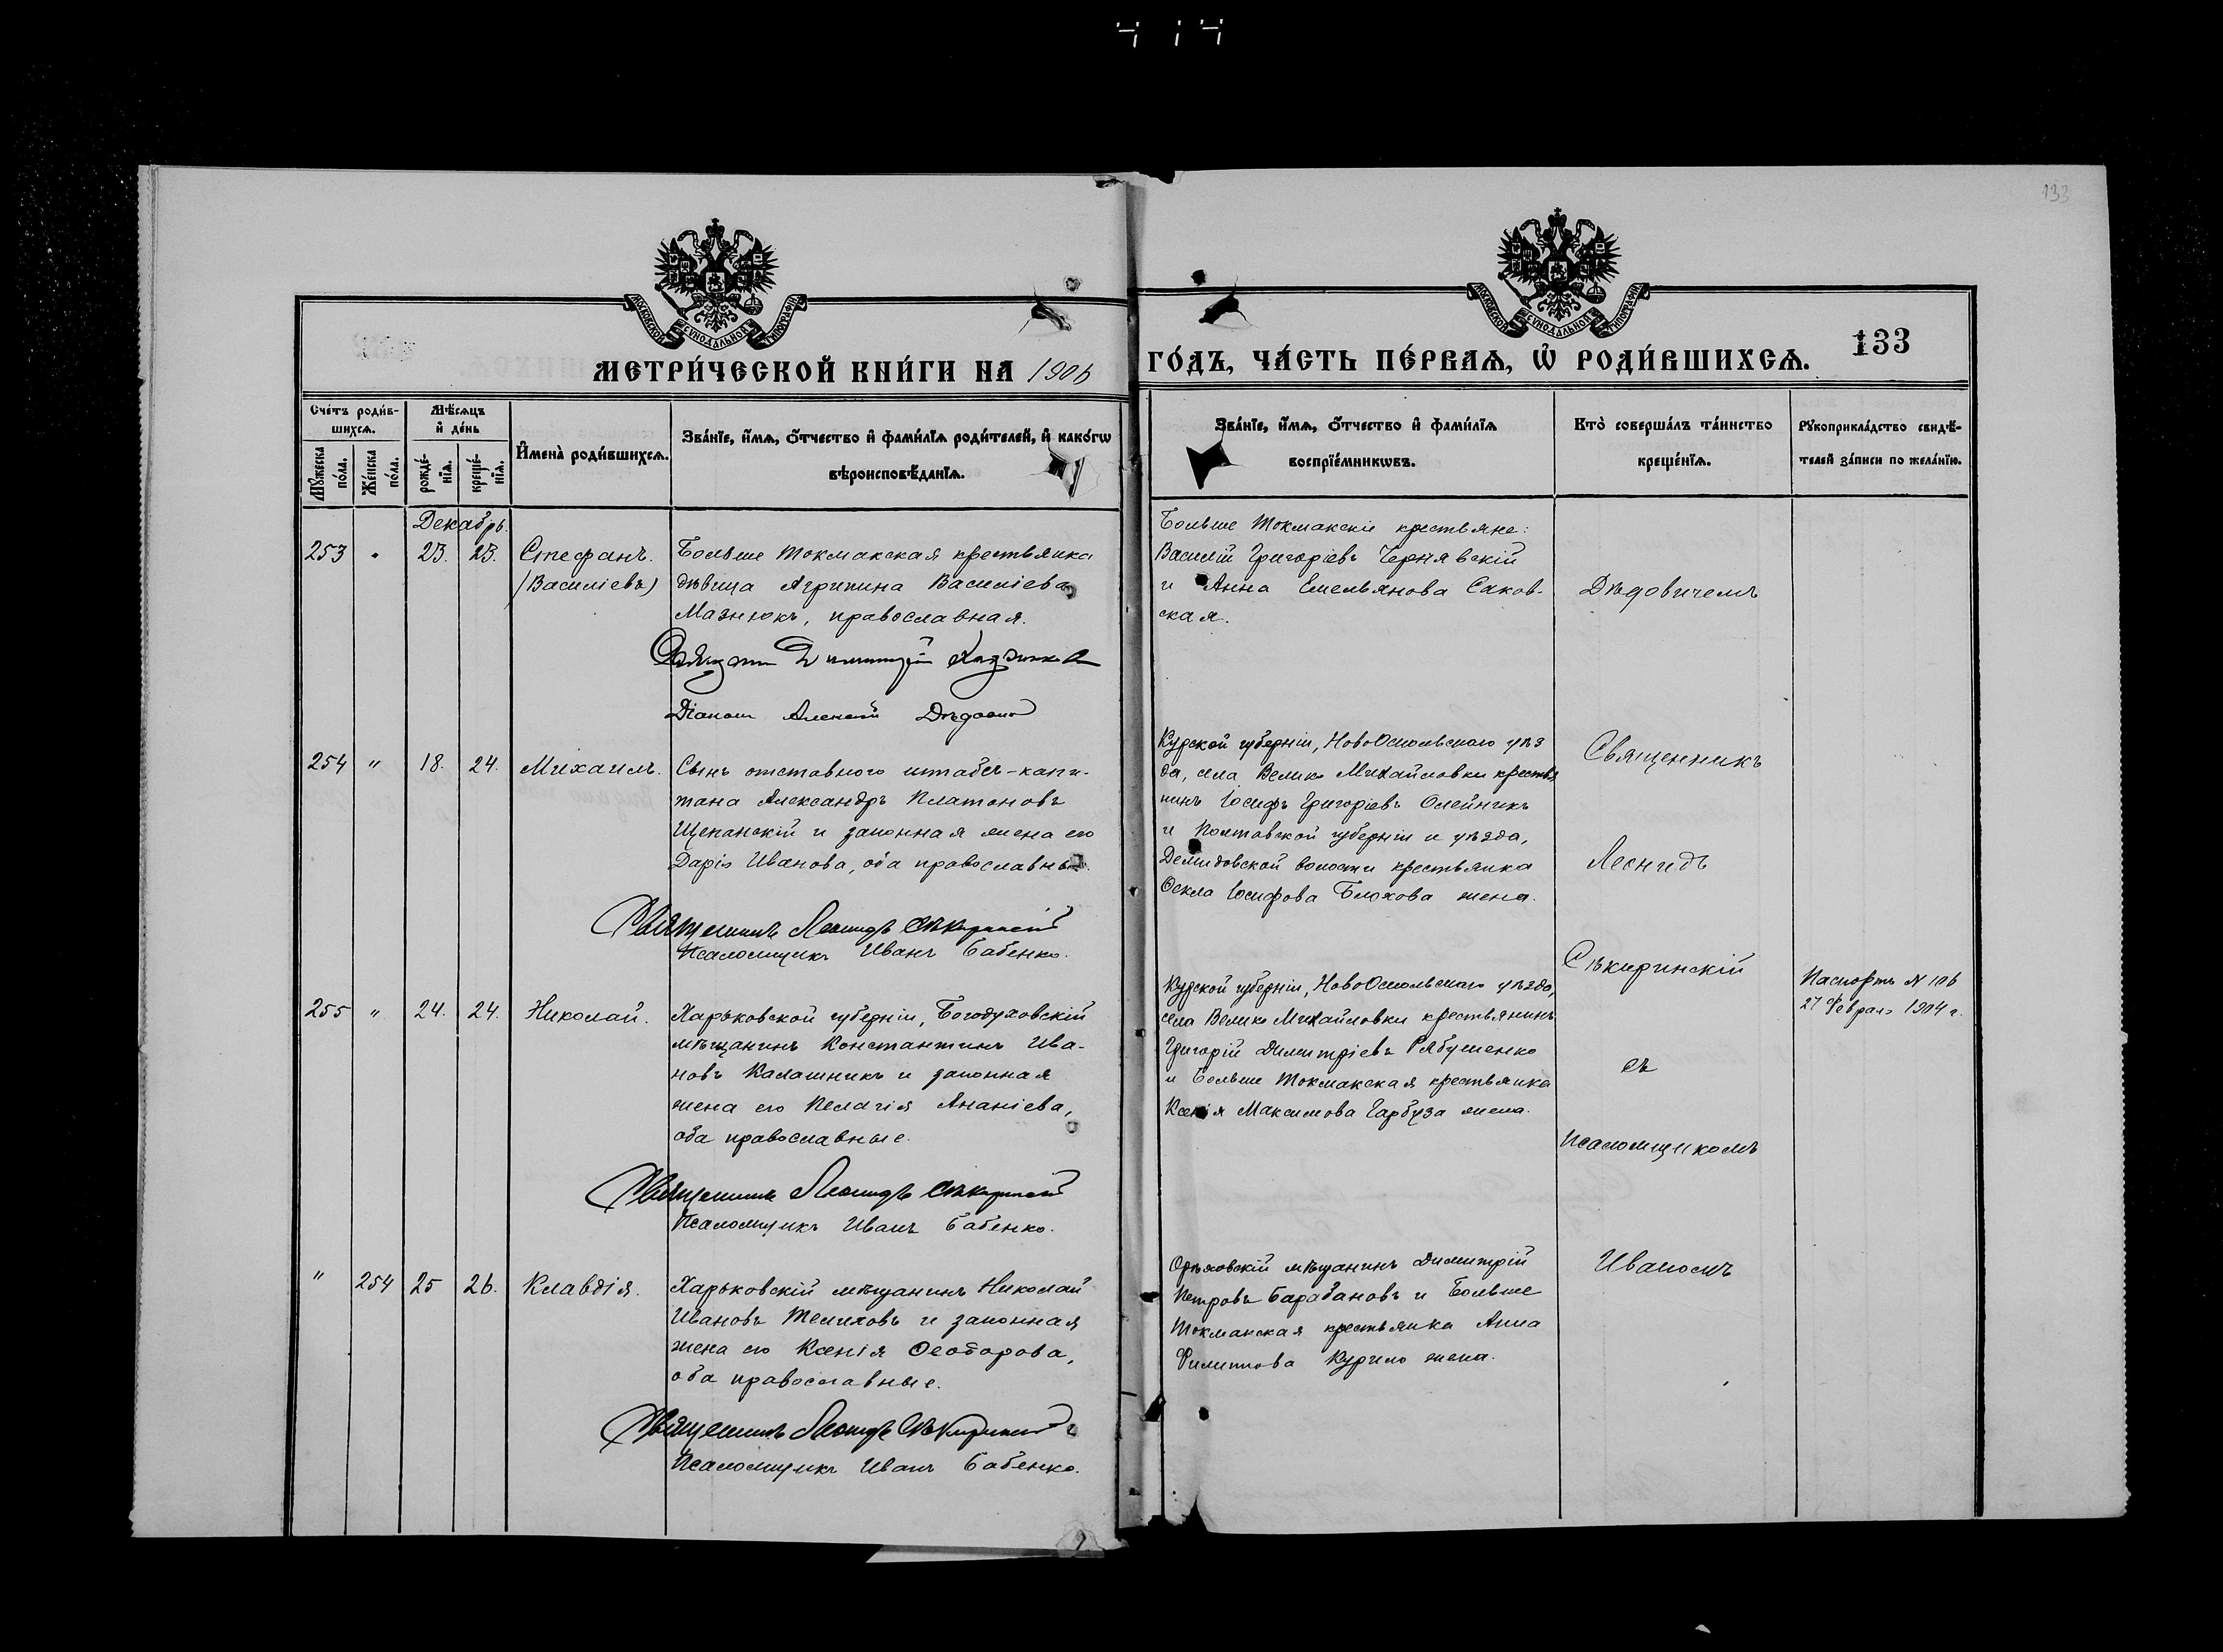 133
МОСКОВСКОЙ СУНОДАЛЬНОЙ ТИПОГРАФІИ
МОСКОВСКОЙ СУНОДАЛЬНОЙ ТИПОГРАФІИ
МЕТРИ́ЧЕСКОЙ КНИ́ГИ НА 1906
ГО́ДЪ, ЧА́СТЬ ПЕ́РВАѦ, Ѡ҆ РОДИ́ВШИХСѦ.
133
Сче́тъ роди́в-
шихсѧ.
Мѣ́сѧцъ
и҆ де́нь
Мꙋ́жеска
по́ла.
Же́нска
по́ла.
рожде́-
нїѧ.
креще́-
нїѧ.
И҆мена̀ роди́вшихсѧ.
Зва́нїе, и҆́мѧ, ѻ҆́тчество и҆ фами́лїѧ роди́телей, и҆ како́гѡ
вѣроисповѣ́данїѧ.
Зва́нїе, и҆́мѧ, ѻ҆́тчество и҆ фами́лїѧ
воспрїе́мникѡвъ.
Кто̀ соверша́лъ та́инство
креще́нїѧ.
Рꙋкоприкла́дство свидѣ́-
телей за́писи по жела́нїю.
Декабрь.
253 " 23. 23. Стефанъ.
(Василіевъ)
Больше Токмакская крестьянка
дѣвица Агрипина Василіева
Мазнюкъ, православная.
Діаконъ Алексій Дѣдовичъ
Больше Токмакскіе крестьяне:
Василій Григоріевъ Чернявскій
и Анна Емельянова Саков-
ская.
Дѣдовичемъ
254 " 18. 24. Михаилъ.
Сынъ отставного штабсъ-капи-
тана Александръ Платоновъ
Щепанскій и законная жена его
Дарія Иванова, оба православные.
Священникъ Леонидъ Сѣкиринскій
Псаломщикъ Иванъ Бабенко.
Курской губерніи, НовоОскольскаго уѣз
да, села Велико Михайловки крестья
нинъ Іосифъ Григоріевъ Олейникъ
и Полтавской губерніи и уѣзда,
Демидовской волости крестьянка
Ѳекла Іосифова Блохова жена.
Священникъ
Леонидъ
Сѣкиринскій
255 " 24. 24. Николай.
Харьковской губерніи, Богодуховскій
мѣщанинъ Константинъ Ива-
новъ Калашникъ и законная
жена его Пелагія Ананіева,
оба православные.
Священникъ Леонидъ Сѣкиринскій
Псаломщикъ Иванъ Бабенко.
Курской губерніи, НовоОскольскаго уѣзда,
села Велико Михайловки крестьянинъ
Григорій Димитріевъ Рябушенко
и Больше Токмакская крестьянка
Ксенія Максимова Гарбуза жена.
съ
псаломщикомъ
Паспортъ N 106
27 Февраля 1904 г.
" 254 25 26. Клавдія.
Харьковскій мѣщанинъ Николай
Ивановъ Телиховъ и законная
жена его Ксенія Ѳеодорова,
оба православные.
Священникъ Леонидъ Сѣкиринскій
Псаломщикъ Иванъ Бабенко.
Орѣховскій мѣщанинъ Димитрій
Петровъ Барабановъ и Больше
Токмакская крестьянка Анна
Филиппова Курило жена.
Иваномъ